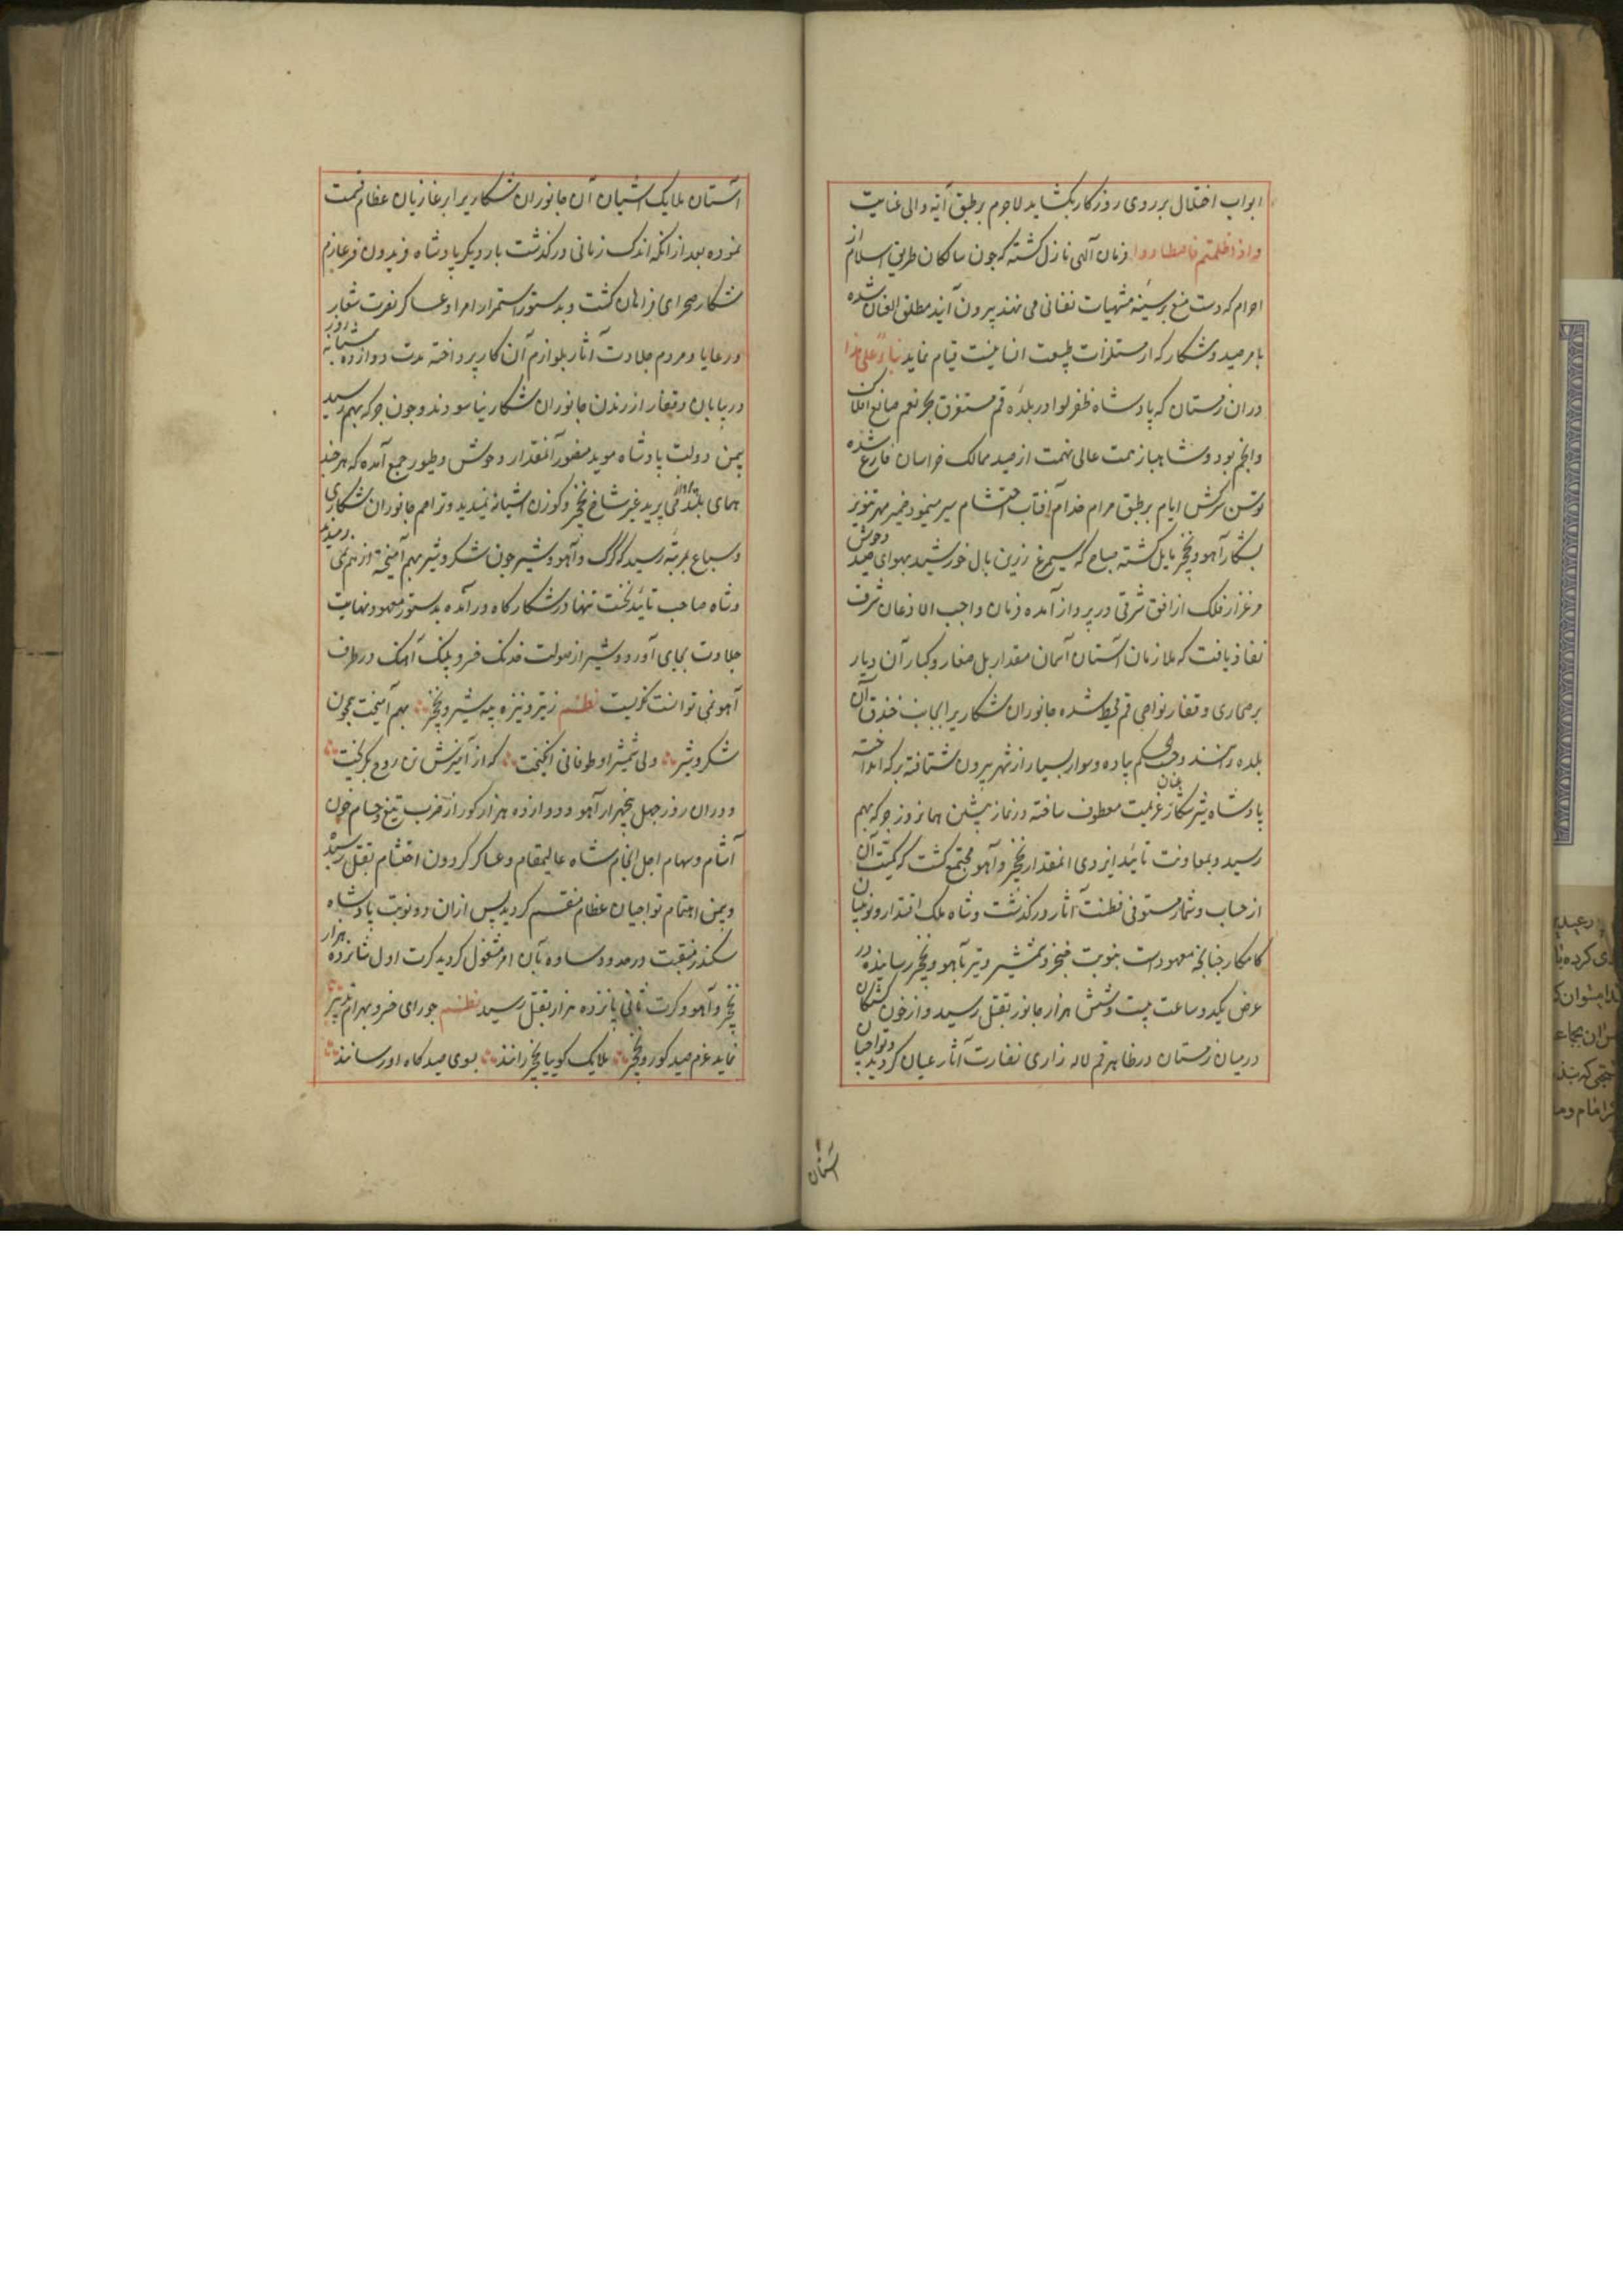 ابواب اختلال بر روی روزکار بکشاید لاجرم بر طبق آیه والی عنایت
واذا حللتم فاصطادوا فرمان آلهی نازل کشته که چون سالکان طریق اسلام از
احرام که دست منع بر سینه مشتهیات نفسانی می نهند بیرون آیند مطلق العنان شده
بامر صید و شکار که از مستلزمات طبیعت انسانیست قیام نمایند بناءً علی هذا
دران زمستان که پادشاه ظفر لوا در بلده قم مستغرق بحر نعم صانع افلاک
وانجم بود و شاهباز همت عالی نهمت از صید ممالک خراسان فارغ شده
توسن سرکش ایام بر طبق مرام خدام آفتاب احتشام سیر مینمود ضمیر مهر تنویر
بشکار آهو و نخجیر مایل کشته صباح که سیمرغ زرین بال خورشید بهوای صید وحوش
مرغزار فلک از افق شرقی در پرواز آمده فرمان واجب الاذعان شرف
نفاذ یافت که ملازمان آستان آسمان مقدار بل صغار و کبار آن دیار
بر صحاری و قفار نواحی قم محیط شده جانوران شکاریرا بجانب خندق آن
بلده رانند و حسب الحکم پیاده و سوار بسیار از شهر بیرون شتافته جرکه انداخته
پادشاه شیر شکار عنان عزیمت معطوف ساخته در نماز پیشین همانروز جرکه بهم
رسید و بمعاونت تائید ایزدی انمقدار نخجیر و آهو مجتمع کشت که کمیت آن
از حساب و شمار مستوفی فطنت آثار درکذشت و شاه ملک اقتدار و نوئینان
کامکار چنانچه معهودست بنوبت خنجر و شمشیر و تیر بآهو و نخجیر رسانیده در
عرض یکدو ساعت بیست و شش هزار جانور بقتل رسید و از خون کشتکان
در میان زمستان در ظاهر قم لاله زاری نضارت آثار عیان کردید و تواجیان
آستان
آستان ملایک آشیان آن جانوران شکاریرا بر غازیان عظام قسمت
نموده بعد از انکه اندک زمانی درکذشت بار دیکر پادشاه فریدون فر عازم
شکار صحرای فراهان کشت و بدستور استمرار امرا و عساکر نصرت شعار
و رعایا و مردم جلادت آثار بلوازم آن کار پرداخته مدت دوازده شبانه روز
در بیابان و قفار از راندن جانوران شکار نیاسودند و چون جرکه بهم رسید
بیمن دولت پادشاه موید منصور آنمقدار وحوش و طیور جمع آمده که هر چند
همای بلند پرواز می پرید غیر شاخ نخجیر و کوزن آشیانه نمیدید و تراحم جانوران شکاری
و سباع بمرتبه رسید که کرک و آهو و شیر چون شکر و شیر بهم آمیخته از هم نمی رمیدند
و شاه صاحب تائید نخست تنها در شکارکاه درآمده بدستور معهود نهایت
جلادت بجای آورد و شیر از صولت خدنک خسرو پلنک آهنک در طرف
آهو نمی توانست نکریست نظم ز تیر و نیزه بیشه شیر و نخجیر بهم آمیخت همچون
شکر و شیر ولی شمشیر او طوفانی انکیخت که از آمیزش تن روح بکریخت
و دران روز چهل پنجهزار آهو و دوازده هزار کور از ضرب تیغ و حسام خون
آشام و سهام اجل انجام شاه عالیمقام و عساکر کردون احتشام بقتل رسید
و بیمن اهتمام تواجیان عظام منقسم کردید پس ازان دو نوبت پادشاه
سکندر منقبت در حدود ساوه بآن امر مشغول کردید کرت اول شانزده هزار
نخجیر و آهو و کرت ثانی پانزده هزار بقتل رسید نظم چو رای خسرو بهرام تدبیر
نماید عزم صید کور و نخجیر ملایک کوییا نخجیر رانند بسوی صیدکاه او رسانند